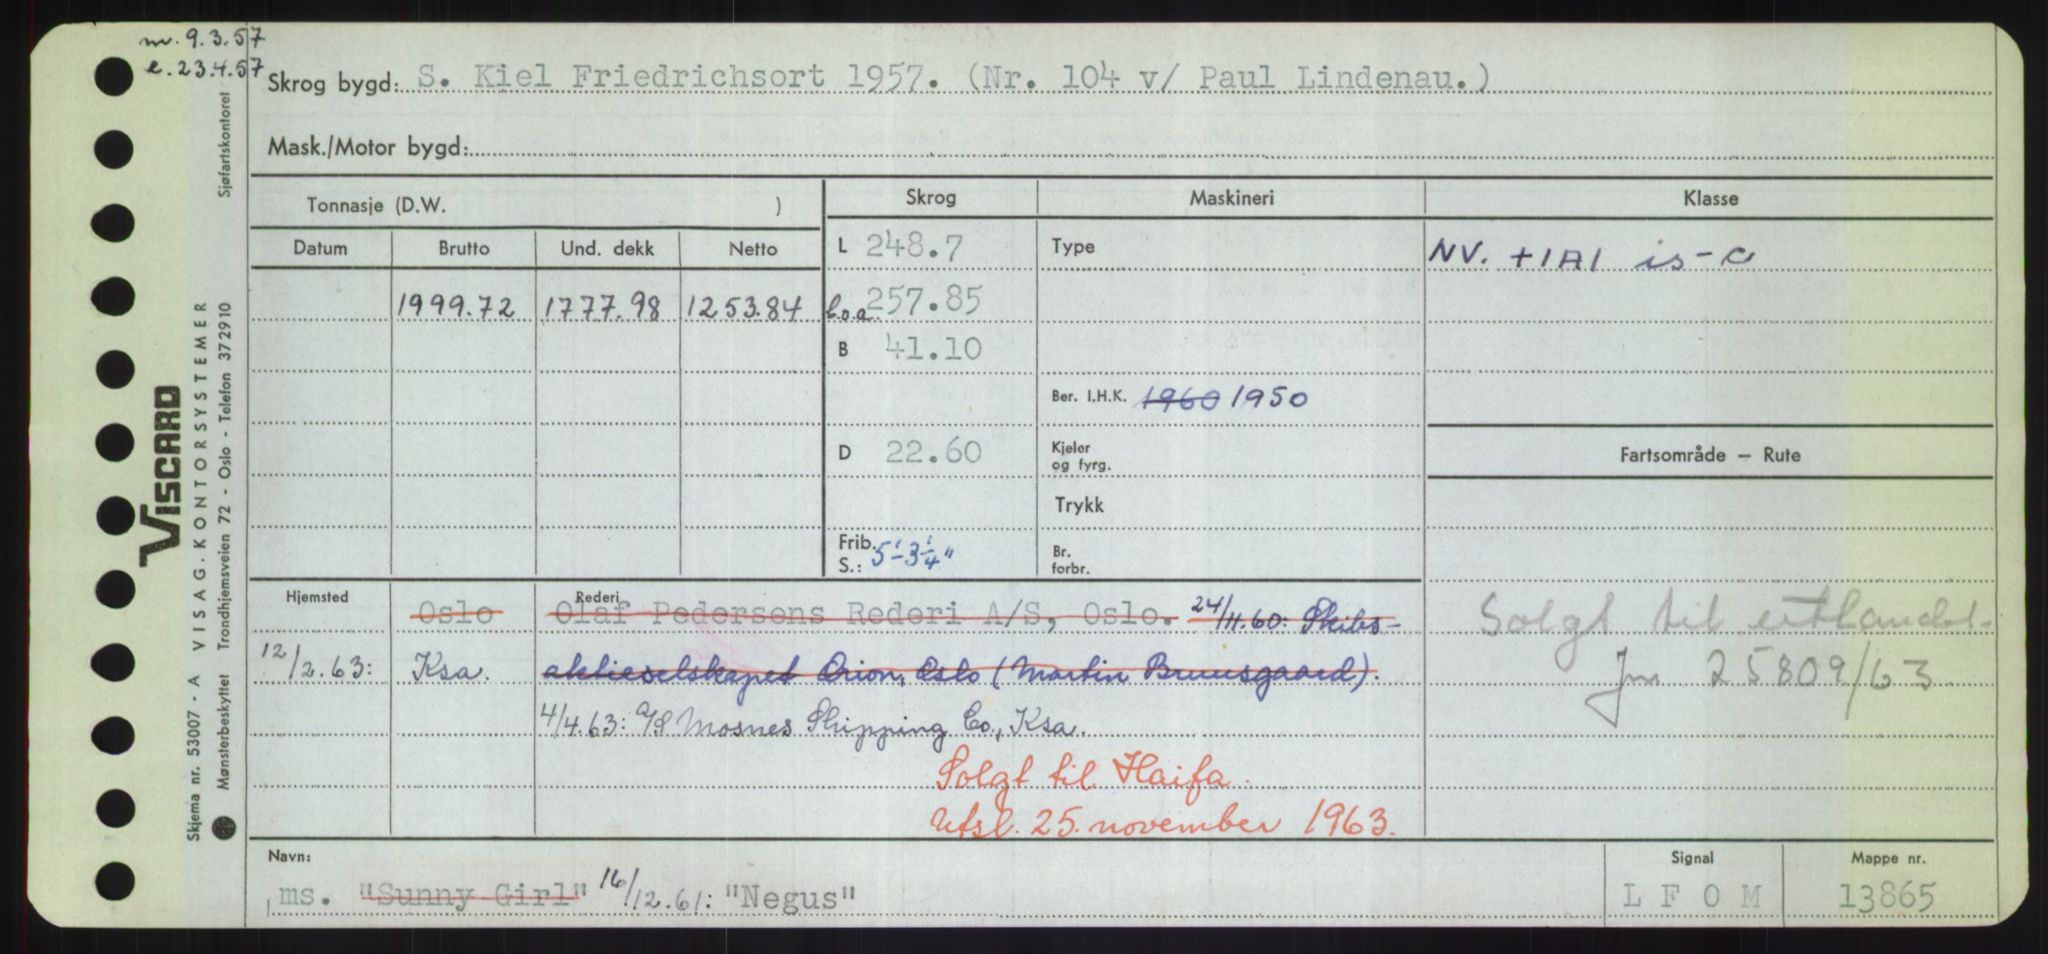 m. 9.3.57
e. 23.4.57
Skrog bygd: S. Kiel Friedrichsort 1957. (Nr. 104 v/ Paul Lindenau.)
Mask./Motor bygd:
Tonnasje (D.W. )
Skrog
Maskineri
Klasse
Datum Brutto Und. dekk Netto
L 248.7
Type
NV. +1A1 is-C
1999.72 1777.98 1253.84
l.o.a. 257.85
B 41.10
Ber. I.H.K. 1960 1950
D 22.60
Kjeler
og fyrg.
Fartsområde – Rute
Trykk
Frib.
S.: 5'-3¼"
Br.
forbr.
Hjemsted
Rederi
Oslo Olaf Pedersens Rederi A/S, Oslo. 24/11.60: Skibs-
12/2.63: Ksa. aktieselskapet Orion, Oslo (Martin Bruusgaard).
4/4.63: A/S Mosnes Shipping Co., Ksa.
Solgt til Haifa.
Utsl. 25. november 1963.
Solgt til utlandet.
Jnr 25809/63
Navn:
Signal
Mappe nr.
ms. "Sunny Girl" 16/12.61: "Negus"
L F O M
13865
VISCARD
Skjema nr. 53007 - A VISAG. KONTORSYSTEMER
Mønsterbeskyttet Trondhjemsveien 72 - Oslo - Telefon 372910
Sjøfartskontoret